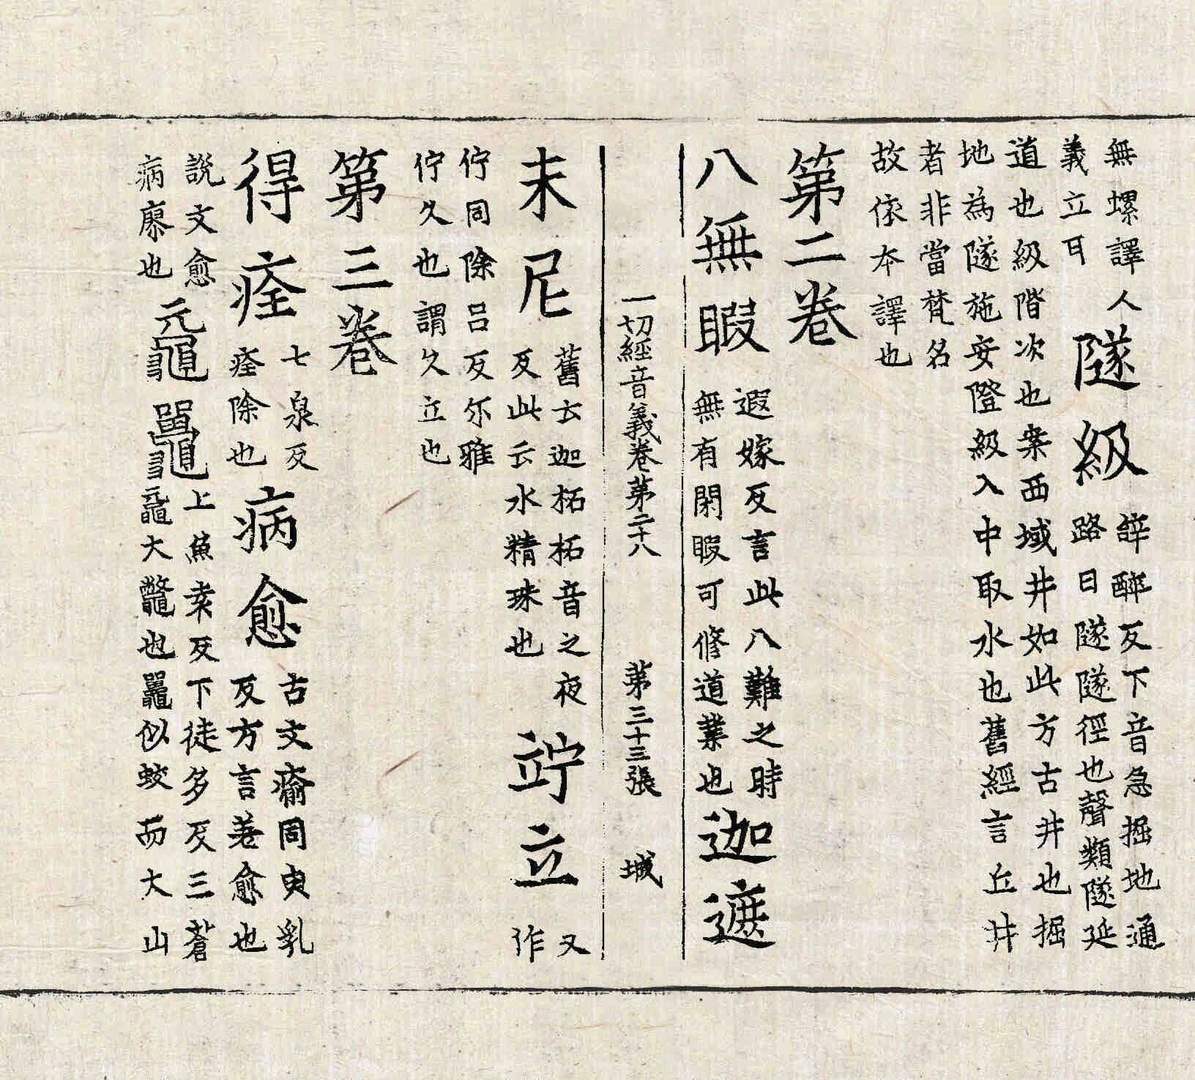 無螺譯人
義立耳
隧級
辝醉反下音急掘地通
路曰隧隧徑也聲類隧延
道也級階次也案西域井如此方古井也掘
地為隧施安隥級入中取水也舊經言丘井
者非當梵名
故依本譯也
第二卷
八無暇
遐嫁反言此八難之時
無有閑暇可修道業也
迦遮
一切經音義卷第二十八 第三十三張 城
末尼
舊云迦柘柘音之夜
反此云水精珠也
竚立
又
作
佇同除呂反尔雅
佇久也謂久立也
第三卷
得痊
七泉反
痊除也
病愈
古文瘉同臾乳
反方言差愈也
說文愈
病瘳也
黿鼉
上魚袁反下徒多反三蒼
黿大鼈也鼉似蛟而大山